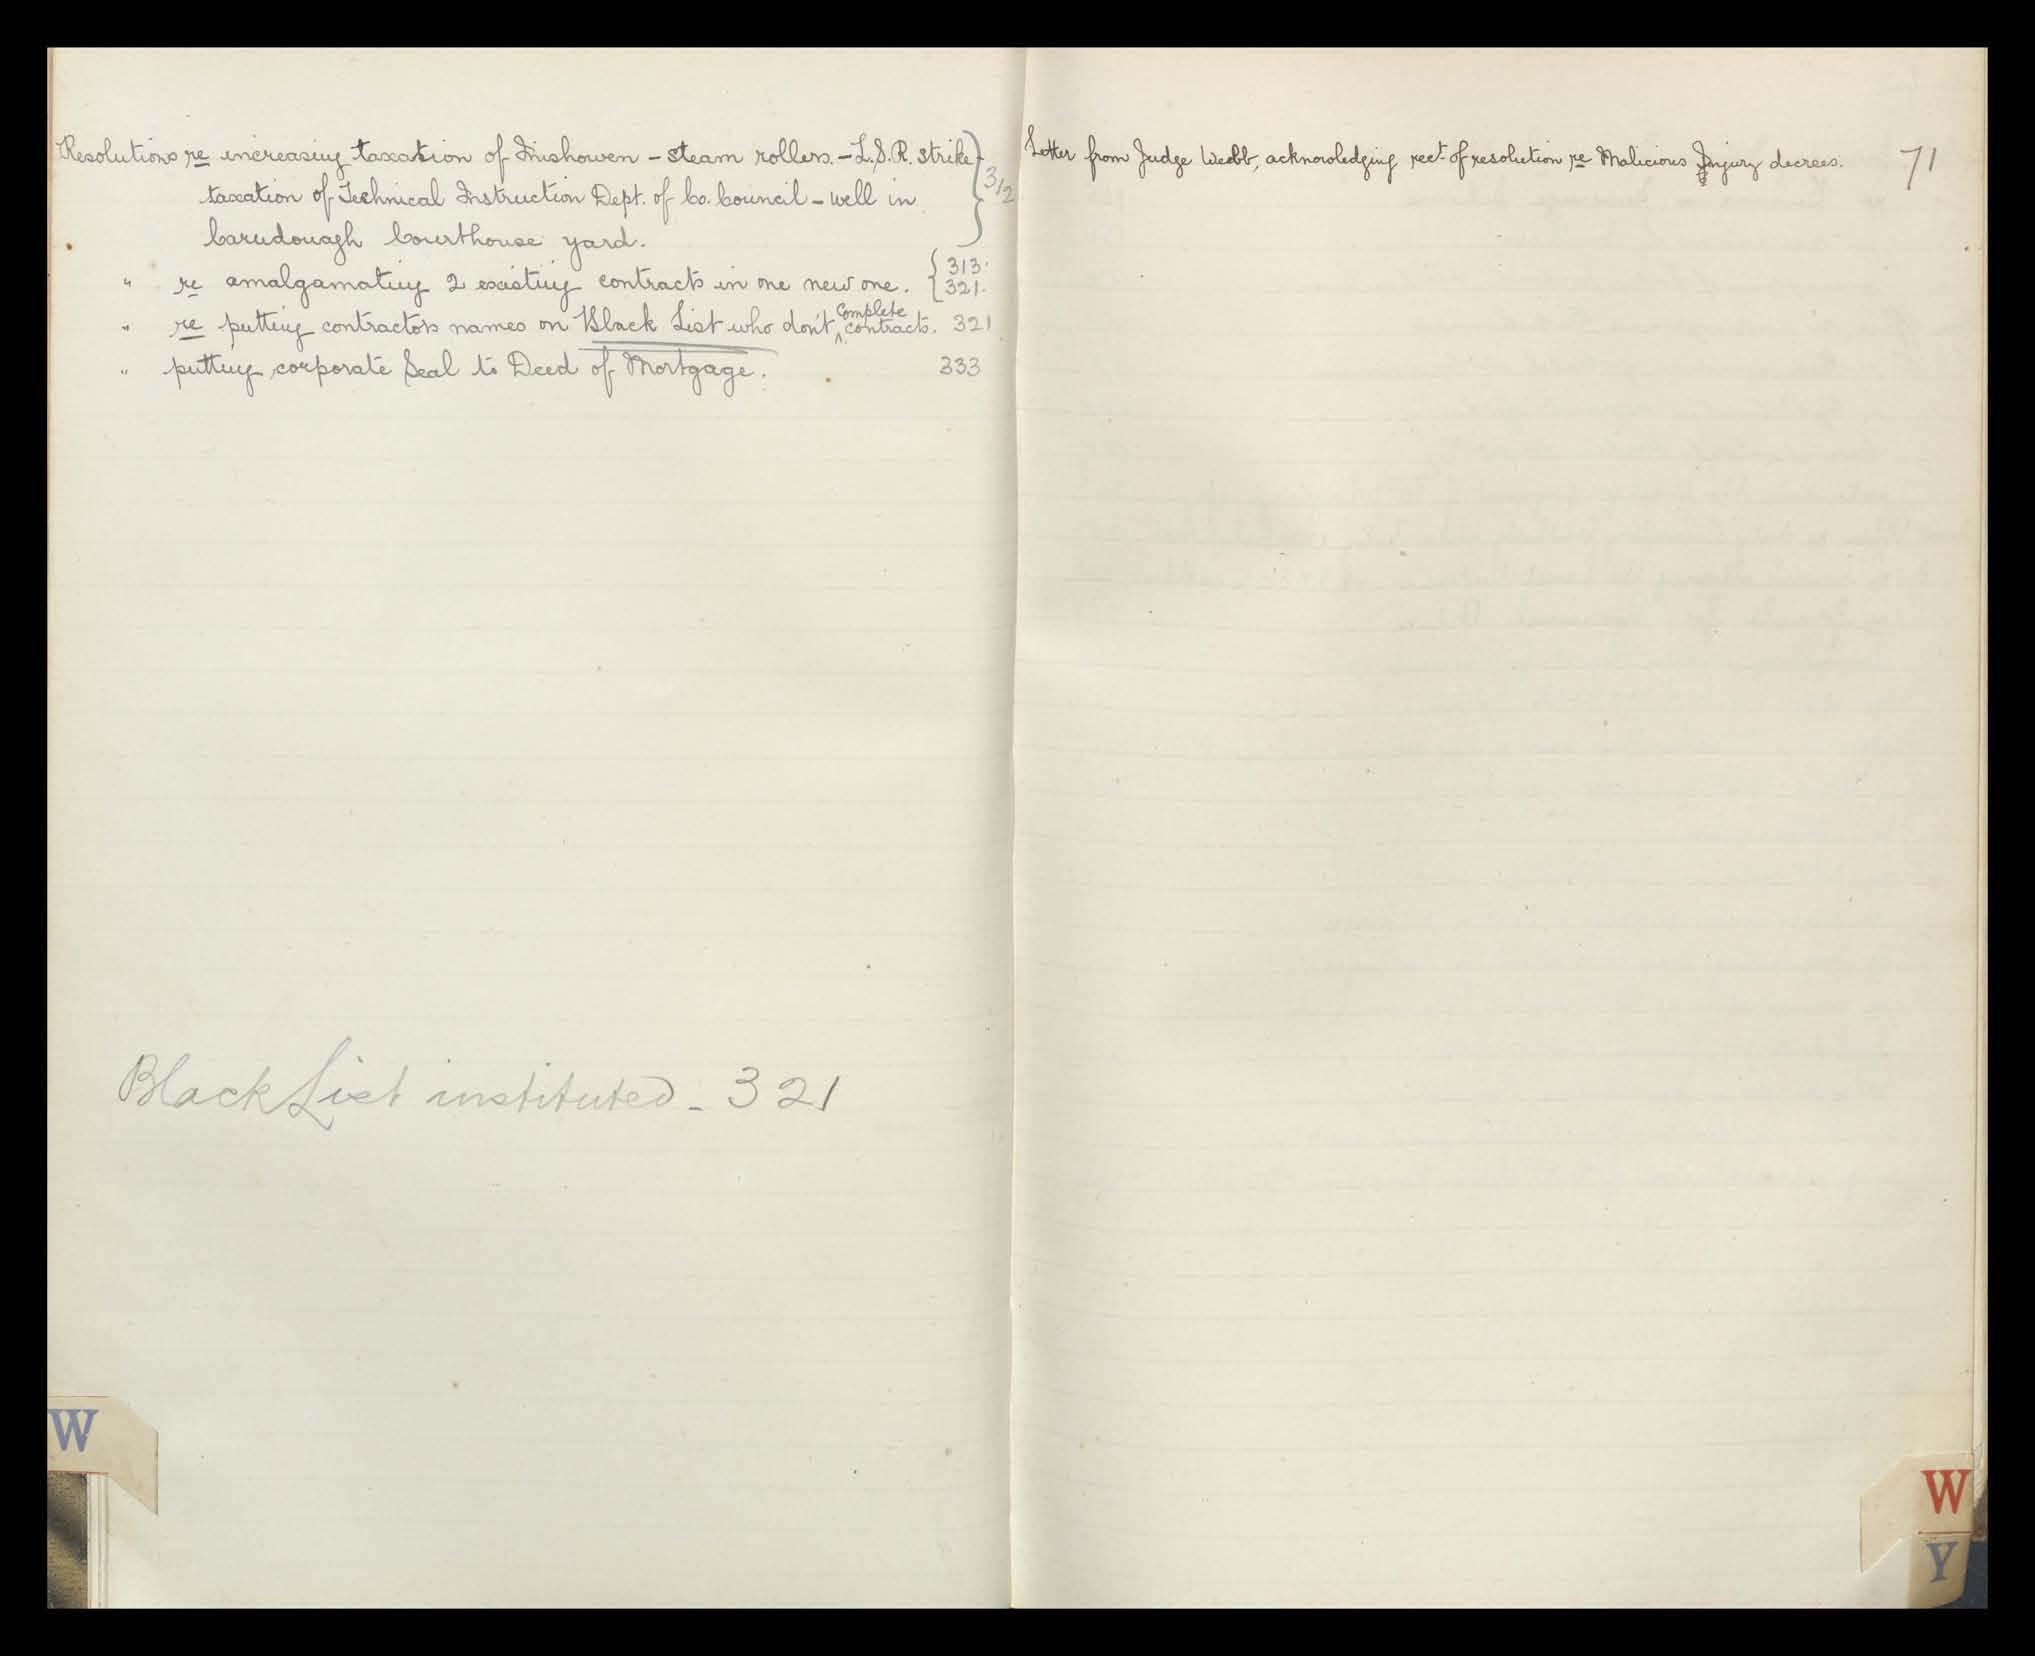 Resolutions re increasing taxation of Inishowen - steam rollers. - L.S.R. strike } 312
taxation of Technical Instruction Dept. of Co. Council - well in
Carndonagh Courthouse yard.
" re amalgamating 2 existing contracts in one new one. { 313. 321.
" re putting contractors names on Black List who don't ^complete contracts. 321
" putting corporate Seal to Deed of Mortgage. 333
Black List instituted - 321
W
Letter from Judge Webb, acknowledging rect. of resolution re Malicious Injury decrees. 71
W
Y